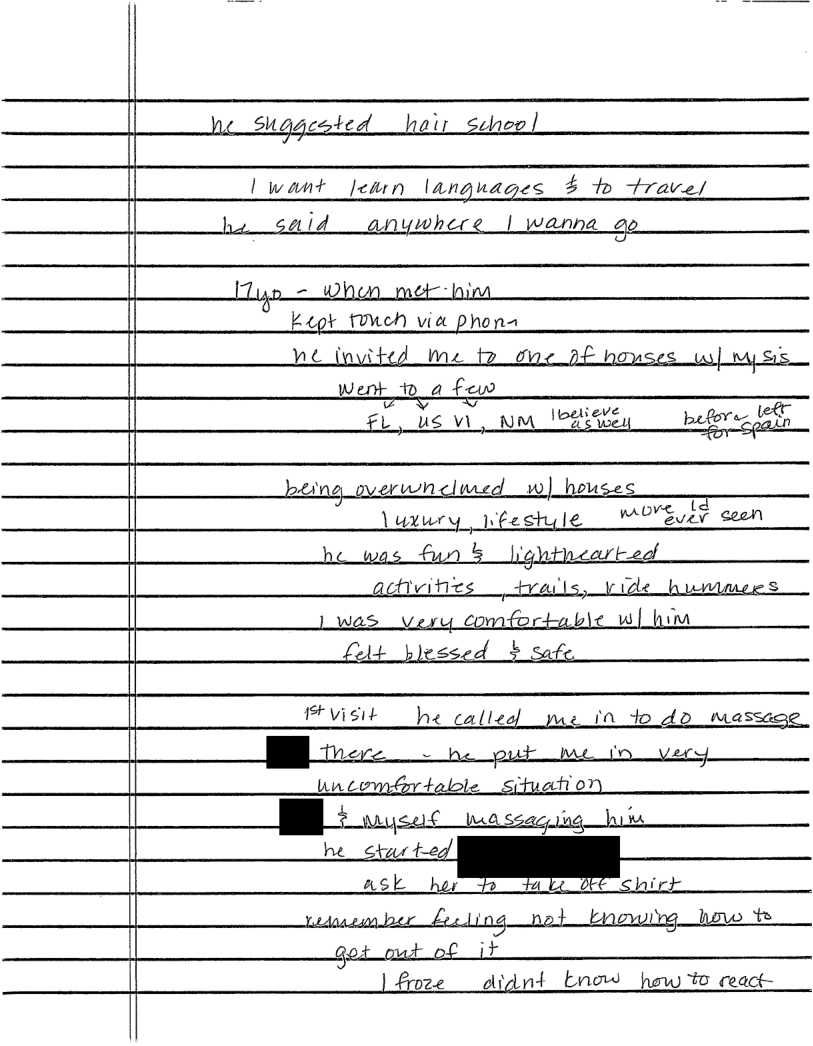 he suggested hair school
I want learn languages & to travel
he said anywhere I wanna go
17yo - when met him
Kept touch via phone
he invited me to one of houses w/ my sis
went to a few
FL, US VI, NM I believe as well before left for Spain
being overwhelmed w/ houses
luxury, lifestyle more I'd ever seen
he was fun & lighthearted
activities, trails, ride hummers
I was very comfortable w/ him
felt blessed & safe
1st visit he called me in to do massage
there - he put me in very
uncomfortable situation
& myself massaging him
he started
ask her to take off shirt
remember feeling not knowing how to
get out of it
I froze didnt know how to react